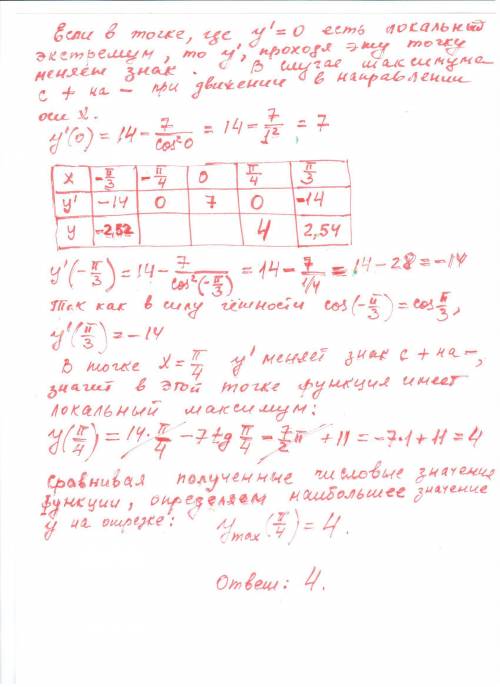 Если в точке, где y'=0 есть локальный
экстремум, то y', проходя эту точку
меняет знак. В случае максимума
с + на − при движении в направлении
оси x.
y'(0) = 14 − 7/cos²0 = 14 − 7/1² = 7
x | −π/3 | −π/4 | 0 | π/4 | π/3
y' | −14 | 0 | 7 | 0 | −14
y | −2,52 | | | 4 | 2,54
y'(−π/3) = 14 − 7/cos²(−π/3) = 14 − 7/1/4 = 14 − 28 = −14
Так как в силу чётности cos(−π/3) = cos π/3,
y'(π/3) = −14
В точке x = π/4 y' меняет знак с + на −,
значит в этой точке функция имеет
локальный максимум:
y(π/4) = 14·π/4 − 7tg π/4 − 7/2 π + 11 = −7·1 + 11 = 4
Сравнивая полученные числовые значения
функции, определяем наибольшее значение
y на отрезке: y max (π/4) = 4.
Ответ: 4.